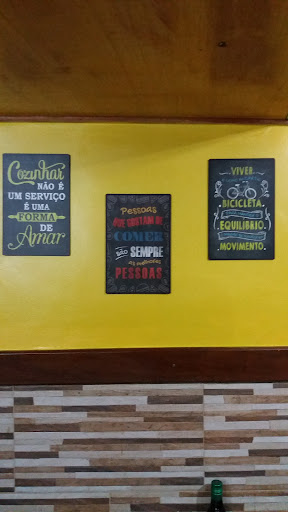 Cozinhar
NÃO É
UM SERVIÇO
É UMA
FORMA
DE
Amar
Pessoas
QUE GOSTAM DE
COMER
SÃO SEMPRE
as melhores
PESSOAS
VIVER
BICICLETA
EQUILÍBRIO
MOVIMENTO